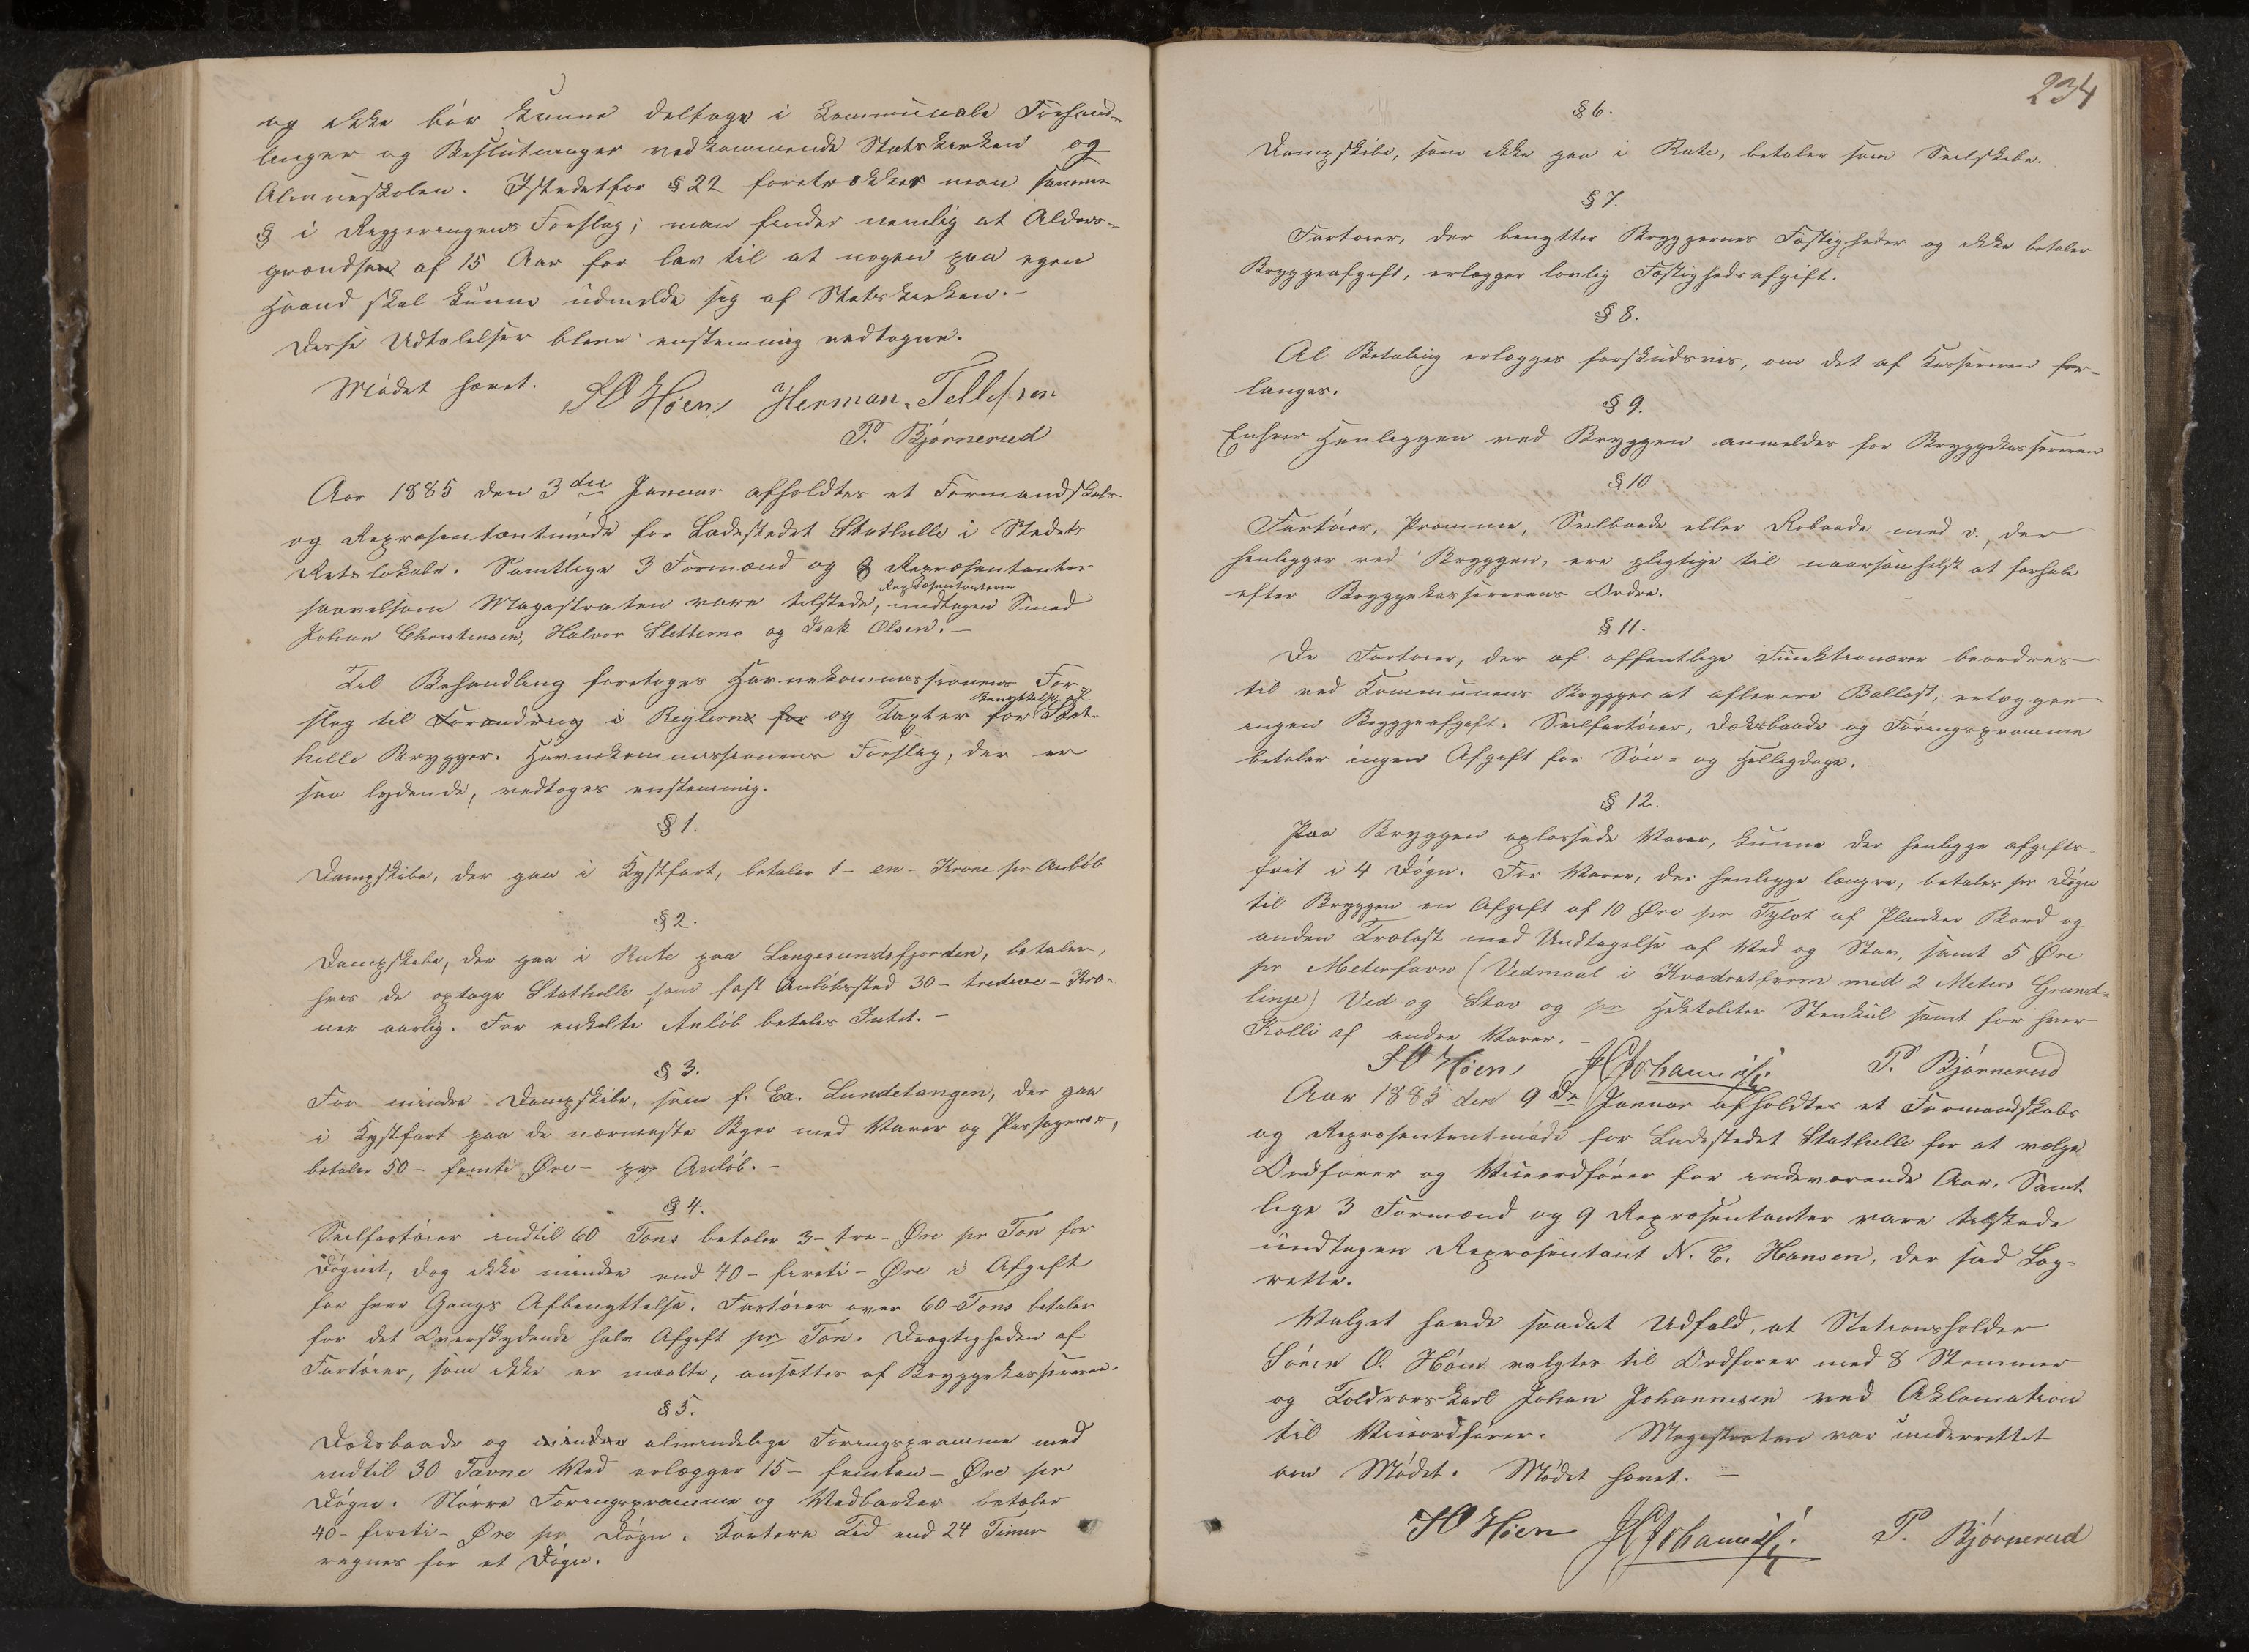 og ikke bør kunne deltage i kommunale Forhand-
linger og Beslutninger vedkommende Statskirken og
Almueskolen. Istedetfor § 22 foretrækker man samme
§ i Regjeringens Forslag; man finder nemlig at Alders-
grændsen af 15 Aar for lav til at nogen paa egen
Haand skal kunne udmelde sig af Statskirken.-
Disse Udtalelser bleve enstemmig vedtagne.
Mødet hævet. SO Høen Herman Tellefsen
P. Bjørnerud
Aar 1885 den 3die Januar afholdtes et Formandskabs
og Repræsentantmøde for Ladestedet Stathelle i Stedets
Retslokale. Samtlige 3 Formænd og 9 Repræsentanter
Repræsentanterne
saavelsom Magistraten vare tilstede, undtagen Smed
Johan Christensen, Halvor Slettemo og Isak Olsen.-
Til Behandling foretoges Havnekommissionens For-
Benyttelse af
slag til Forandring i Reglerne for og Taxter for Stat-
helle Brygger. Havnekommissionens Forslag, der er
saa lydende, vedtoges enstemmig.
§ 1.
Dampskibe, der gaa i Kystfart, betaler 1 - en - Krone pr Anløb
§ 2.
Dampskibe, der gaa i Rute paa Langesundsfjorden, betaler,
hvis de optage Stathelle som fast Anløbssted 30 - tredive - Kro-
ner aarlig. For enkelte Anløb betales Intet.-
§ 3.
For mindre Dampskibe, som f. Ex. Lundetangen, der gaa
i Kystfart paa de nærmeste Byer med Varer og Passagerer,
betaler 50 - femti Øre - pr Anløb.-
§ 4.
Seilfartøier indtil 60 Tons betaler 3 - tre - Øre pr Ton for
Døgnet, dog ikke mindre end 40 - fireti - Øre i Afgift
for hver Gangs Afbenyttelse. Fartøier over 60 Tons betaler
for det Overskydende halv Afgift pr Ton. Drægtigheden af
Fartøier, som ikke er maalte, ansættes af Bryggekassereren.
§ 5.
Dæksbaade og mindre almindelige Føringspramme med
indtil 30 Favne Ved erlægger 15 - femten - Øre pr
Døgn. Større Føringspramme og Vedbarker betaler
40 - fireti - Øre pr Døgn. Kortere Tid end 24 Timer
regnes for et Døgn.
234
§ 6.
Dampskibe, som ikke gaa i Rute, betaler som Seilskibe.
§ 7.
Fartøier, der benytter Bryggernes Fæstigheder og ikke betaler
Bryggeafgift, erlægger lovlig Fæstighedsafgift.
§ 8.
Al Betaling erlægges forskudsvis, om det af Kassereren for-
langes.
§ 9.
Enhver Henliggen ved Bryggen anmeldes for Bryggekassereren
§ 10
Fartøier, Pramme, Seilbaade eller Robaade med v., der
henligger ved Bryggen, ere pligtige til naarsomhelst at forhale
efter Bryggekassererens Ordre.
§ 11.
De Fartøier, der af offentlige Funktionærer beordres
til ved Kommunens Brygger at aflevere Ballast, erlægger
ingen Bryggeafgift. Seilfartøier, Dæksbaade og Føringspramme
betaler ingen Afgift for Søn- og Helligdage.-
§ 12.
Paa Bryggen oplossede Varer, kunne der henligge afgifts-
frit i 4 Døgn. For Varer, der henligge længre, betales pr Døgn
til Bryggen en Afgift af 10 Øre pr Tylvt af Planker Bord og
anden Trælast med Undtagelse af Ved og Stav, samt 5 Øre
pr Meterfavn (Vedmaal i Kvadratform med 2 Meters Grund-
linje) Ved og Stav og pr Hektoliter Stenkul samt for hver
Kolli af andre Varer.-
SO Høen JC Johannesen P. Bjørnerud
Aar 1885 den 9de Januar afholdtes et Formandskabs
og Repræsentantmøde for Ladestedet Stathelle for at vælge
Ordfører og Viceordfører for indeværende Aar. Samt-
lige 3 Formænd og 9 Repræsentanter vare tilstede
undtagen Repræsentant N. C. Hansen, der sad Lag-
rette.
Valget havde saadat Udfald, at Stationsholder
Søren O. Höen valgtes til Ordfører med 8 Stemmer
og Toldroerskarl Johan Johannesen ved Aklamation
til Viceordfører. Magistraten var underrettet
om Mødet. Mødet hævet. -
SO Høen JC Johannesen P. Bjørnerud